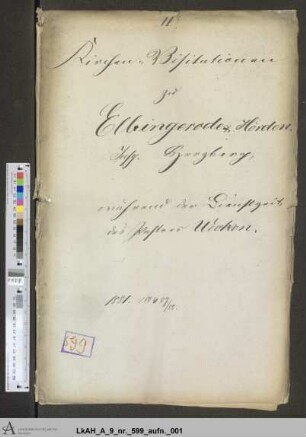 11
Kirchen-Visitationen
zu
Elbingerode u. Hörden,
Insp. Herzberg,
während der Dienstzeit
des Pastors
599
LkAH_A_9_nr._599_aufn._001